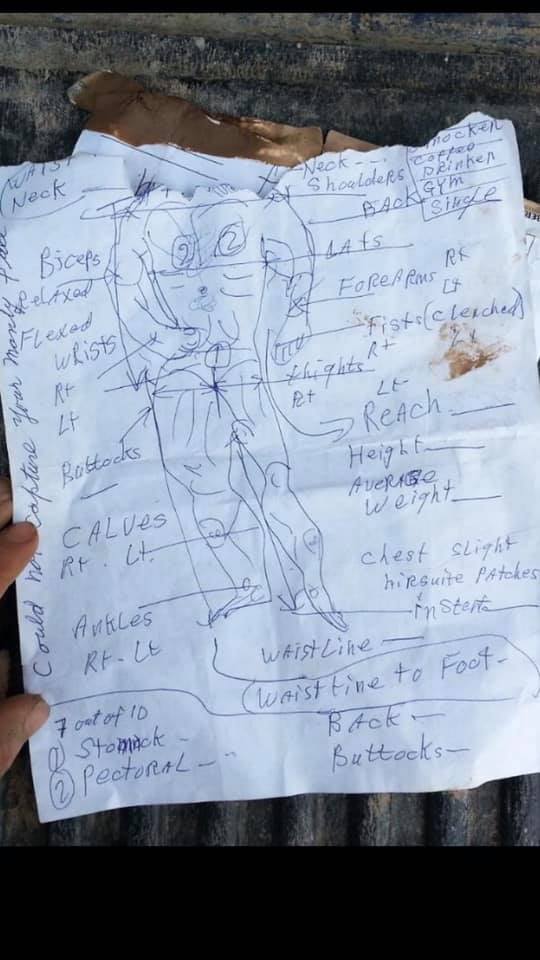 WAIST
Neck
Neck - - -
Shoulders
Smocker
Coffee
Drinker
GYM
Single
BACK
Biceps
Relaxed
Flexed
LAts
Rt
FOREARMS Lt
Wrists
Rt
Lt
Fists (clenched)
Rt
Lt
thights
Rt
Buttocks
REACH
Height
AVERAGE
Weight
CALVES
Rt. Lt.
Chest slight
hirsuite PAtches
Ankles
Rt - Lt
WAistLine
WAistLine to Foot -
7 out of 10
Stomack -
2 PectoRAL - - -
BACK -
Buttocks -
Could not capture your manly
2